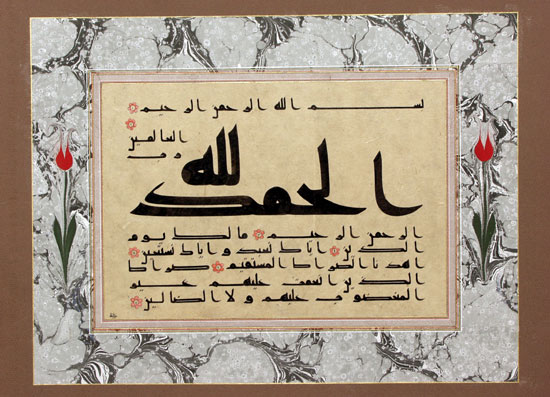 بسم الله الرحمن الرحيم
الحمد لله
رب
العالمين
الرحمن الرحيم مالك يوم
الدين اياك نعبد و اياك نستعين
اهدنا الصراط المستقيم صراط
الذين انعمت عليهم غير
المغضوب عليهم ولا الضالين